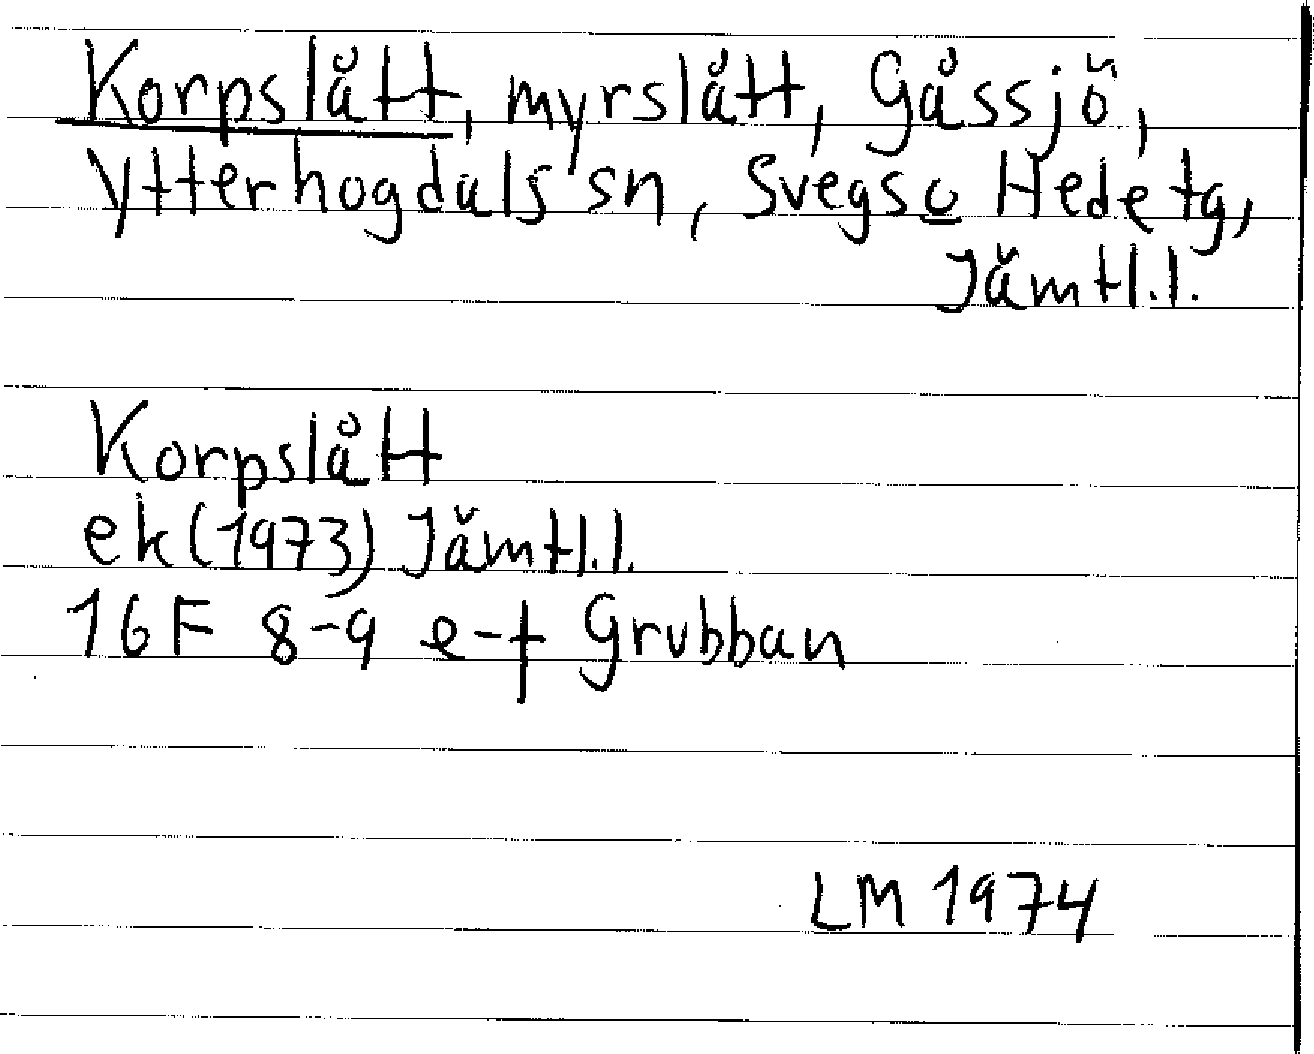 Korpslått, myrslått, Gåssjö,
Ytterhogdals sn, Svegs o Hede tg,
Jämtl.l.
Korpslått
ek (1973) Jämtl.l.
16F 8-9 e-f Grubban
LM 1974